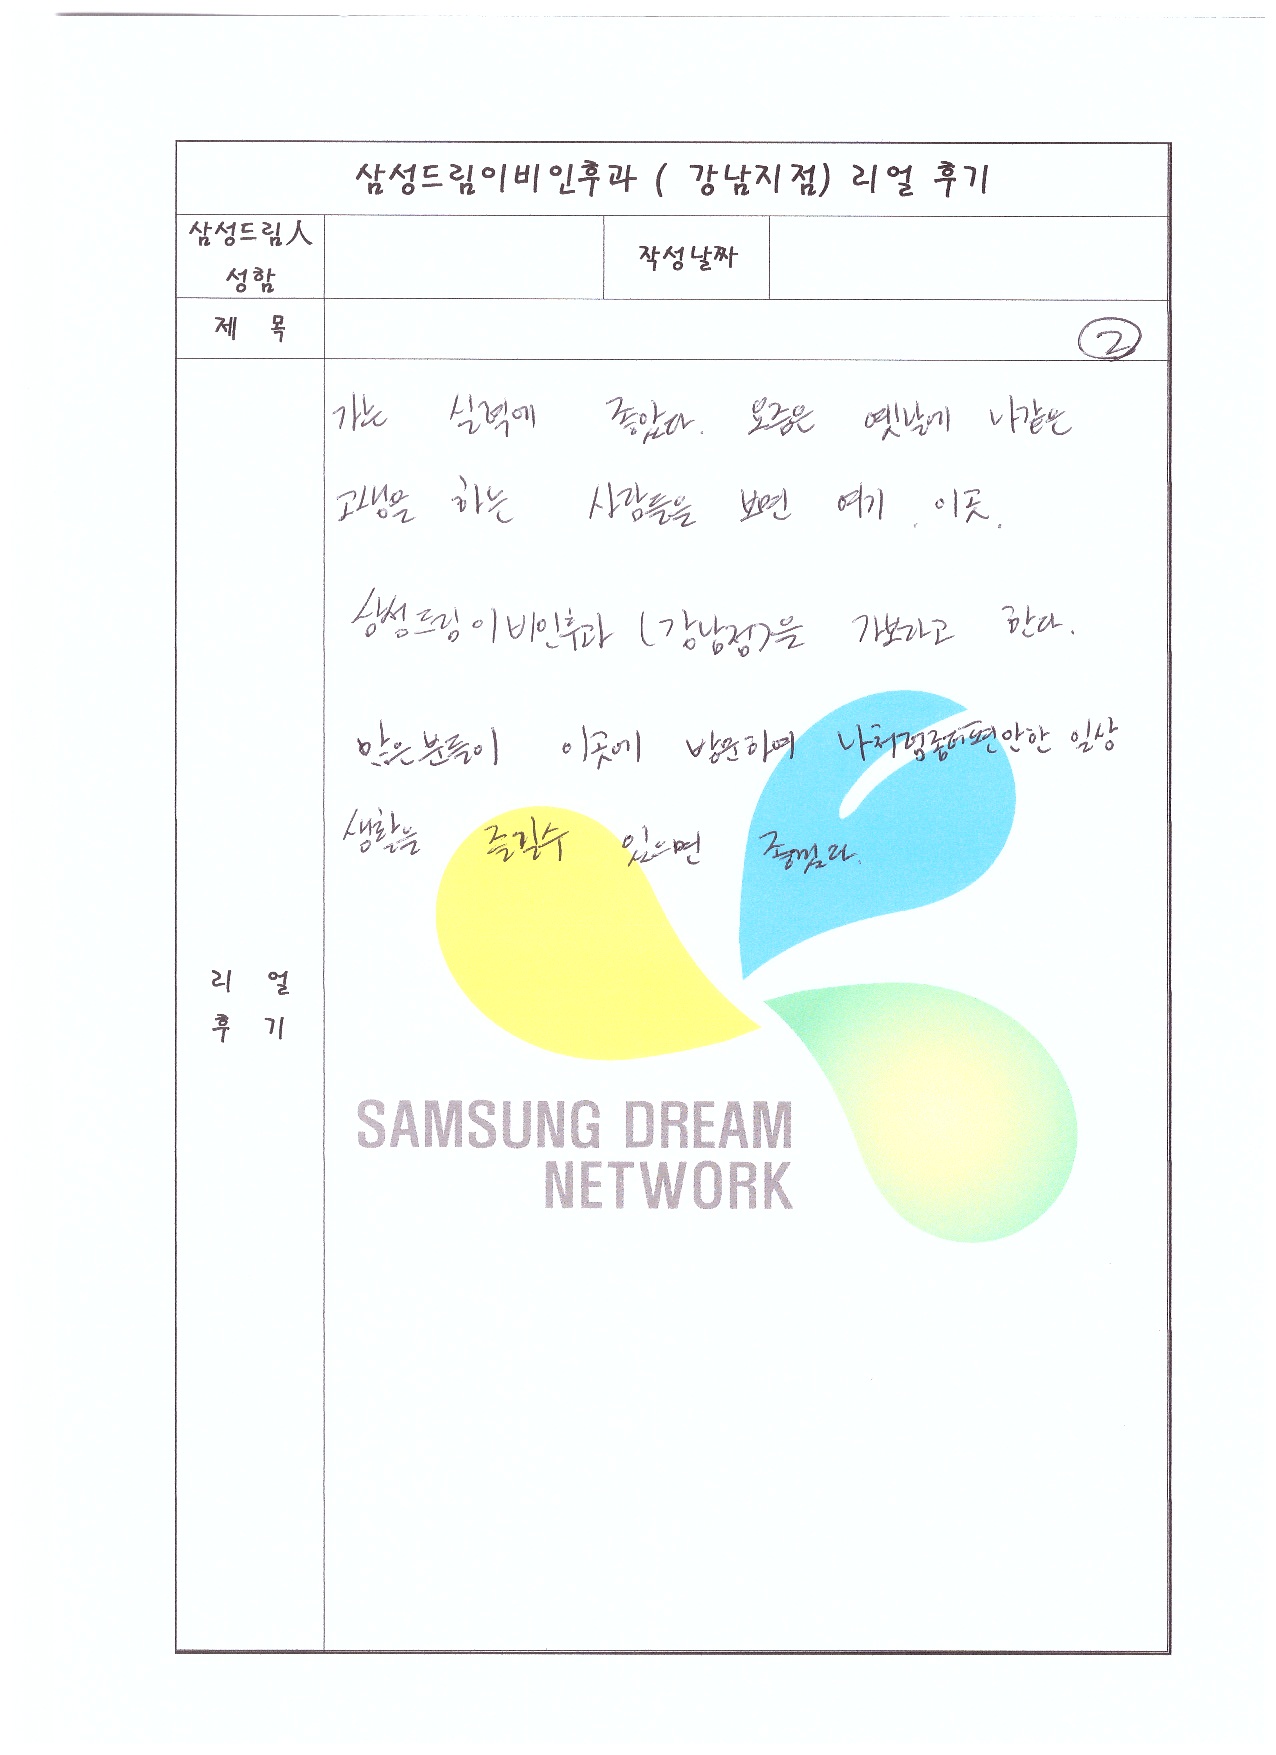 삼성드림이비인후과 ( 강남지점) 리얼 후기
삼성드림人
성함
작성날짜
제 목
②
가는 실력에 좋았다. 요즘은 옛날에 나같은
고생을 하는 사람들을 보면 여기 이곳.
삼성드림이비인후과 (강남점)을 가보라고 한다.
많은분들이 이곳에 방문하여 나처럼 편안한 일상
생활을 즐길수 있으면
리 얼
후 기
SAMSUNG DREAM
NETWORK